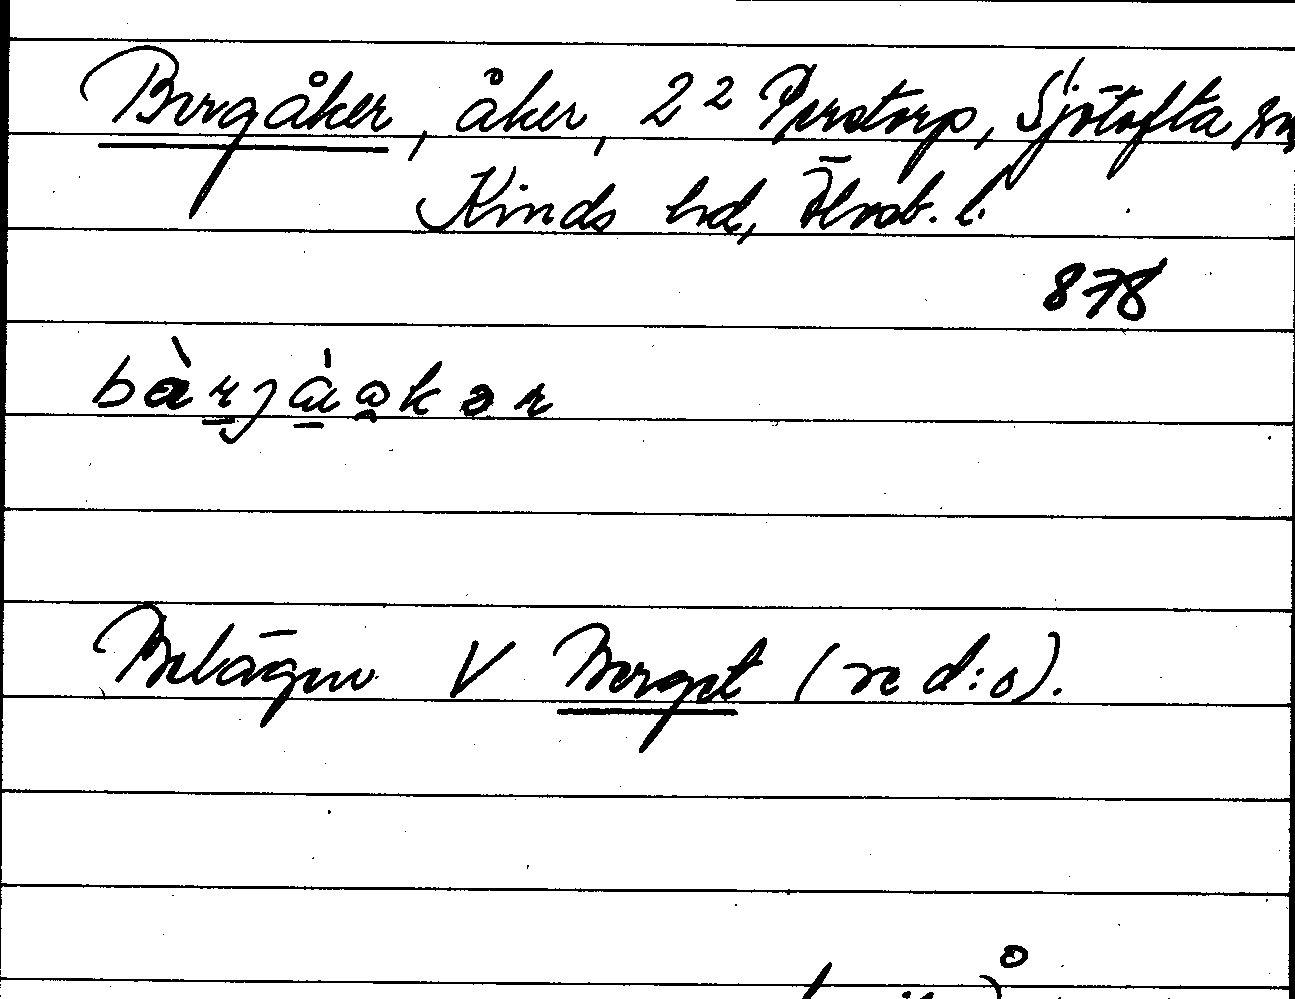 Bergåker, åker, 2² Perstorp, Sjötofta sn
Kinds hd, Älvsb. l.
878
Belägen V Berget (se d:o).